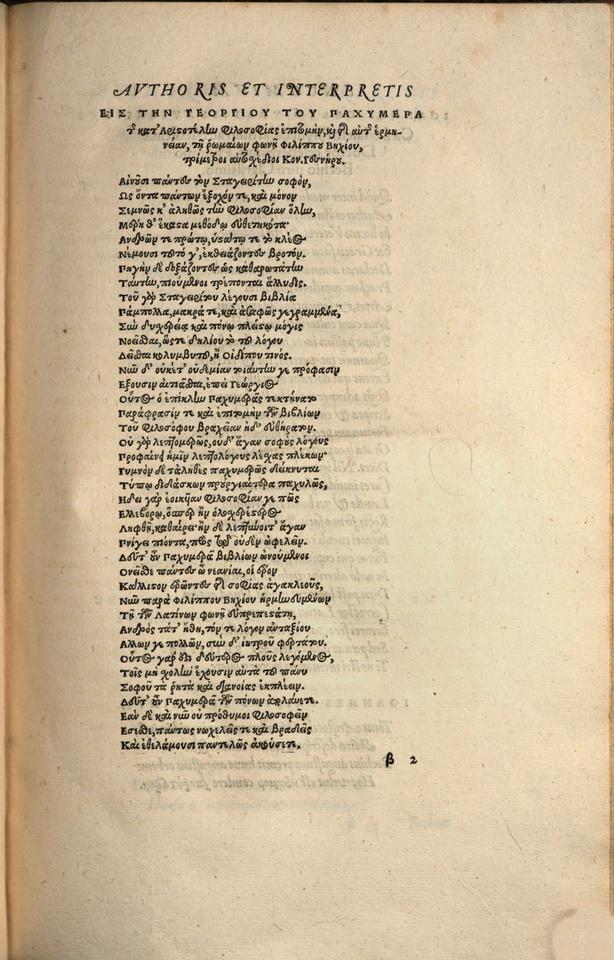 AVTHORIS ET INTERPRETIS
ΕΙΣ ΤΗΝ ΓΕΩΡΓΙΟΥ ΤΟΥ ΠΑΧΥΜΕΡΑ
τῆς κατ' Αριστοτέλην Φιλοσοφίας ἐπιτομὴν, καὶ τὴν αὐτῆς ἑρμη-
νείαν, τῇ ῥωμαίων φωνῇ Φιλίππου Βηχίου,
τρίμετροι αὐτοχέδιοι Κον. Γεσνήρου.
Αἰνοῦσι πάντες τὸν Σταγειρίτην σοφὸν,
Ως ὄντα πάντων ἔξοχόν τε, καὶ μόνον
Σεμνῶς κ' ἀληθῶς τὴν Φιλοσοφίαν ὅλην,
Μέρη θ' ἕκαστα μεθόδῳ συνθετικότα·
Ανδρῶν τε πρώτῳ, ὑστάτῳ τε τὸ κλέος
Νέμουσι τοῦτό γ', ἐκθειάζοντες βροτόν.
Πηγὴν δὲ δοξάζοντες ὡς καθαρωτάτην
Ταύτην, πιούμενοι τρέπονται ἄλλυδις.
Τοῦ γὰρ Σταγειρίτου λέγουσι βιβλία
Πάμπολλα, μακρά τε, καὶ ἀσαφῶς γεγραμμένα,
Σὺν δυσχερείᾳ καὶ πόνῳ πλείστῳ μόγις
Νοεῖσθαι, ὥστε δηλίου τὸ τοῦ λόγου
Δεῖσθαι κολυμβητοῦ, ἢ Οἰδίπου τινός.
Νῦν δ' οὐκέτ' οὐδεμίαν τοιαύτην γε πρόφασιν
Εξουσιν αἰτιᾶσθαι, ἐπεὶ Γεώργιος
Οὗτος ὁ ἐπίκλην Παχυμερὰς τεκτήνατο
Παράφρασίν τε καὶ ἐπιτομὴν τῶν βιβλίων
Τοῦ Φιλοσόφου βραχεῖαν ἠδ' εὐθήρατον.
Οὐ γὰρ λεπτομερῶς, οὐδ' ἄγαν σοφοὺς λόγους
Προφαίνει ἡμῖν λεπτολόγους λέσχας πλέκων·
Γυμνὸν δὲ τἀληθὲς παχυμερῶς δείκνυται
Τύπῳ διδάσκων προὐργιαίτερα παχυλῶς,
Ηδει γὰρ ἐοικυῖαν Φιλοσοφίαν γε πῶς
Ελλεβόρῳ, ὅσπερ ἢν ὁλοσχερέστερος
Ληφθῇ, καθαίρει· ἢν δὲ λεπτυνοῖτ' ἄγαν
Πνίγει πιόντα, πρὸς τῷ οὐδὲν ὠφελεῖν.
Δεῦτ' οὖν Παχυμερᾶ βιβλίων ὠνούμενοι
Ονεῖσθε πάντες ὦ νεανίαι, οἱ ὅρον
Κάλλιστον ὁρῶντες τῆς σοφίας ἀγακλεοῦς,
Νῦν παρὰ Φιλίππου Βηχίου ἡρμηνευμένων
Τῇ τῶν Λατίνων φωνῇ εὐπρεπεστάτῃ,
Ανδρὸς τά τ' ἤθη, τόν τε λόγον ἀνταξίου
Αλλων γε πολλῶν, σὺν δ' ἰητροῦ φερτάτου.
Οὗτος γὰρ ἔστι δεύτερος πλοῦς λεγόμενος,
Τοῖς μὴ σχολὴν ἔχουσιν αὐτὰ τοῦ πάνυ
Σοφοῦ τὰ ῥητὰ καὶ διανοίας ἐκπλέειν.
Δεῦτ' οὖν Παχυμερᾶ τῶν πόνων ἀπολαύετε.
Εὰν δὲ καὶ νῦν οὐ πρόθυμοι Φιλοσοφεῖν
Εσεσθε, πάντως νωχελεῖς τε καὶ βραδεῖς
Καὶ ἐθελάμουσοι παντελῶς ἀκούσετε.
β 2